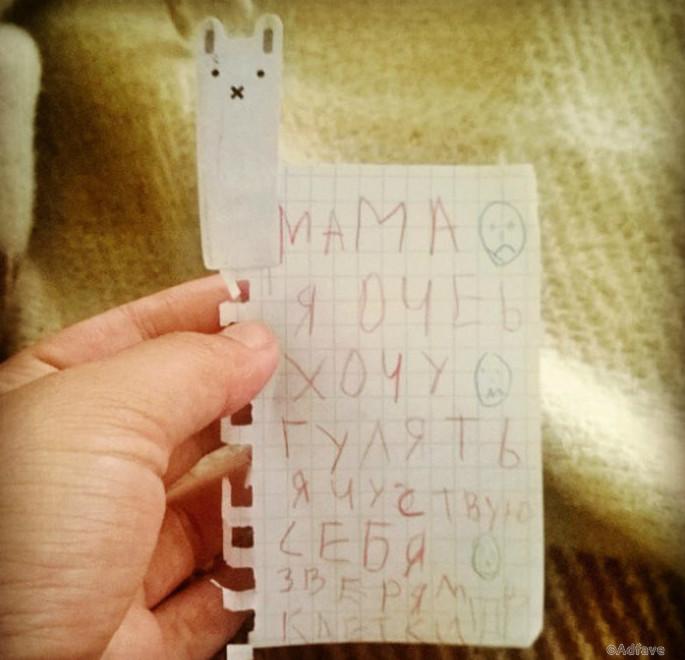 МАМА
Я ОЧЕЬ
ХОЧУ
ГУЛЯТЬ
Я ЧУСТВУЮ
СЕБЯ
ЗВЕРЯМ
КЛЕТКИ
©Adfave